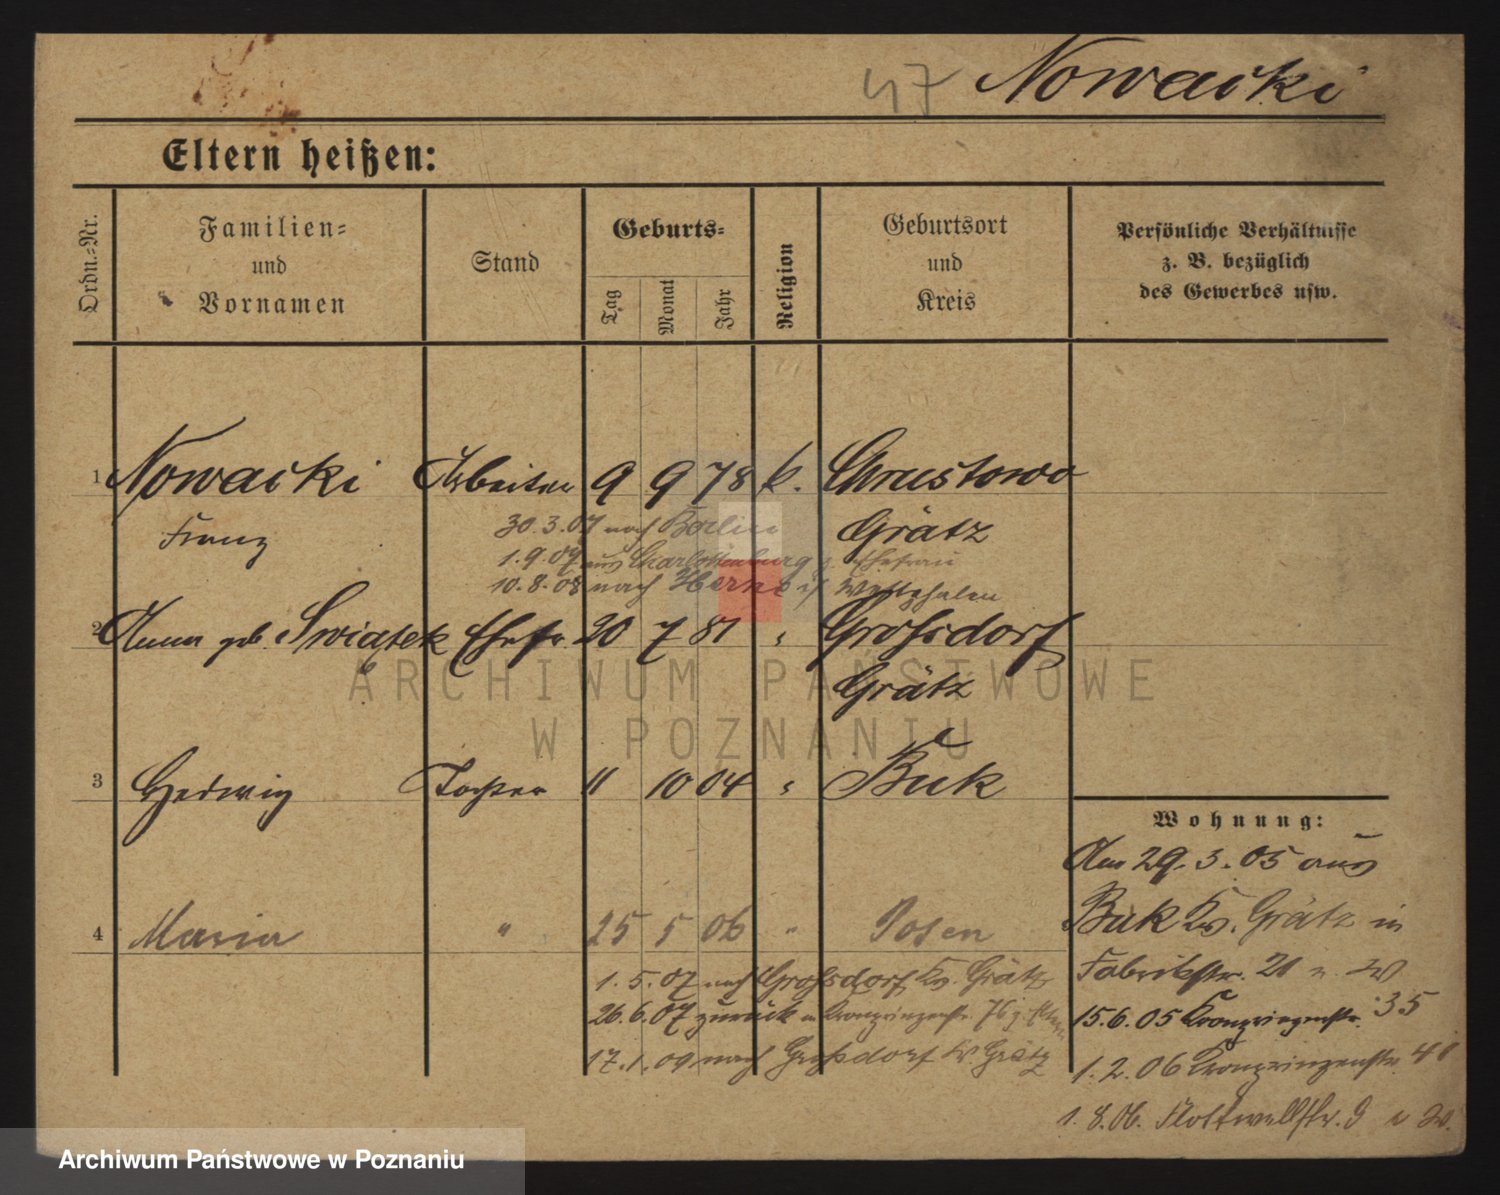 47 Nowacki
Eltern heißen:
Ordn.-Nr.
Familien-
und
Vornamen
Stand
Geburts-
Tag
Monat
Jahr
Religion
Geburtsort
und
Kreis
Persönliche Verhältnisse
z. B. bezüglich
des Gewerbes usw.
1 Nowacki Arbeiter 9 9 78 k. Chrustowo
Franz Grätz
30.3.07 nach Berlin
1.9.07 aus Charlottenburg z. Ehefrau
10.8.08 nach Herne i/ Westphalen
2 Anna geb. Swiątek Ehefr. 20 7 81 " Großdorf
Grätz
3 Hedwig Tochter 11 10 04 " Buk
4 Maria " 25 5 06 " Posen
1.5.07 nach Großdorf Kr. Grätz
26.6.07 zurück n Kronprinzenstr. 76 z. Eltern
17.1.09 nach Großdorf Kr. Grätz
Wohnung:
Am 29.3.05 aus
Buk Kr. Grätz in
Fabrikstr. 21 n. W.
15.6.05 Kronprinzenstr. 35
1.2.06 Kronprinzenstr. 48
1.8.06. Flottwellstr. 9
ARCHIWUM PAŃSTWOWE
W POZNANIU
Archiwum Państwowe w Poznaniu